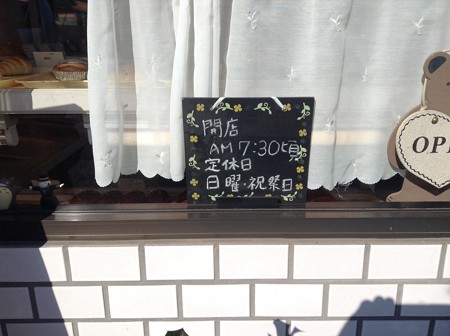 開店
AM 7:30頃
定休日
日曜・祝祭日
OP